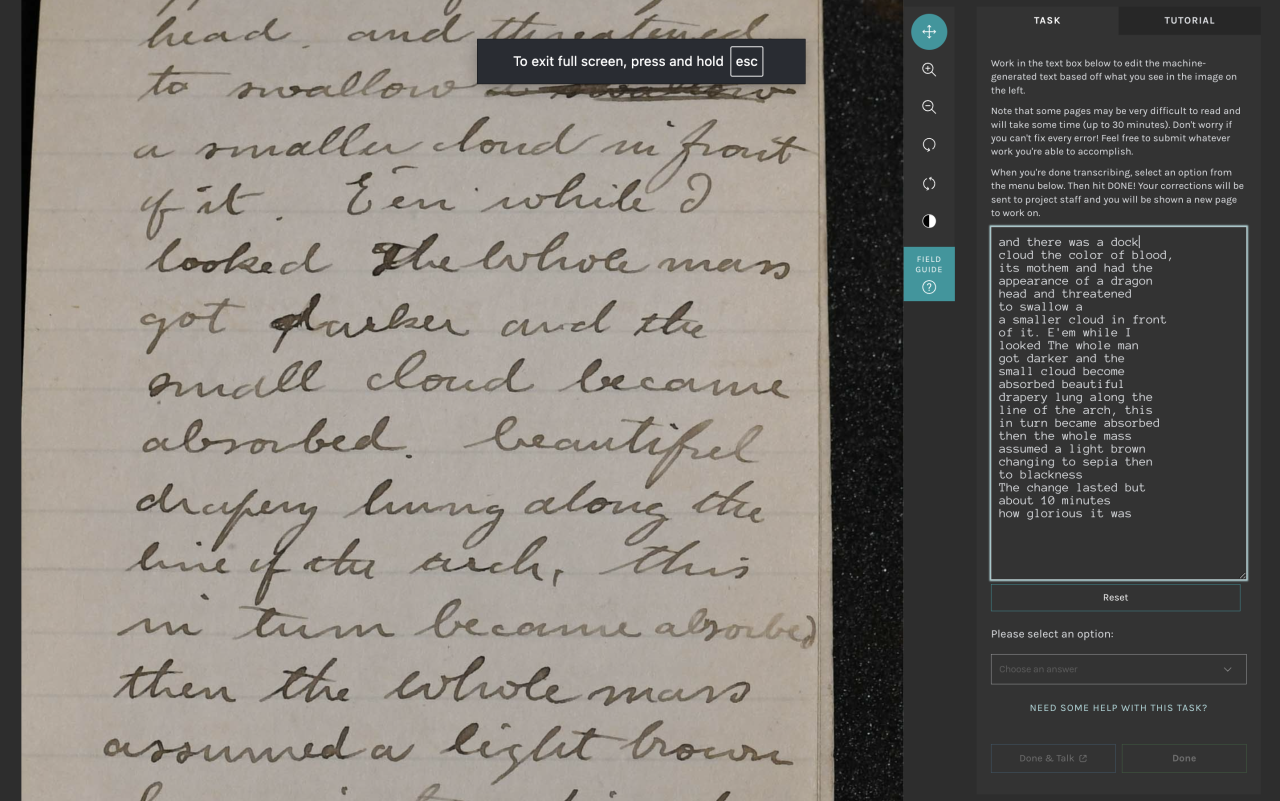 head. and threatened
to swallow a swallow
a smaller cloud in front
of it. E'en while I
looked The whole mass
got darker and the
small cloud became
absorbed. beautiful
drapery hung along the
line of the arch, this
in turn became absorbed
then the whole mass
assumed a light brown
To exit full screen, press and hold esc
FIELD
GUIDE
TASK
TUTORIAL
Work in the text box below to edit the machine-
generated text based off what you see in the image on
the left.
Note that some pages may be very difficult to read and
will take some time (up to 30 minutes). Don't worry if
you can't fix every error! Feel free to submit whatever
work you're able to accomplish.
When you're done transcribing, select an option from
the menu below. Then hit DONE! Your corrections will be
sent to project staff and you will be shown a new page
to work on.
and there was a dock
cloud the color of blood,
its mothem and had the
appearance of a dragon
head and threatened
to swallow a
a smaller cloud in front
of it. E'em while I
looked The whole man
got darker and the
small cloud become
absorbed beautiful
drapery lung along the
line of the arch, this
in turn became absorbed
then the whole mass
assumed a light brown
changing to sepia then
to blackness
The change lasted but
about 10 minutes
how glorious it was
Reset
Please select an option:
Choose an answer
NEED SOME HELP WITH THIS TASK?
Done & Talk
Done